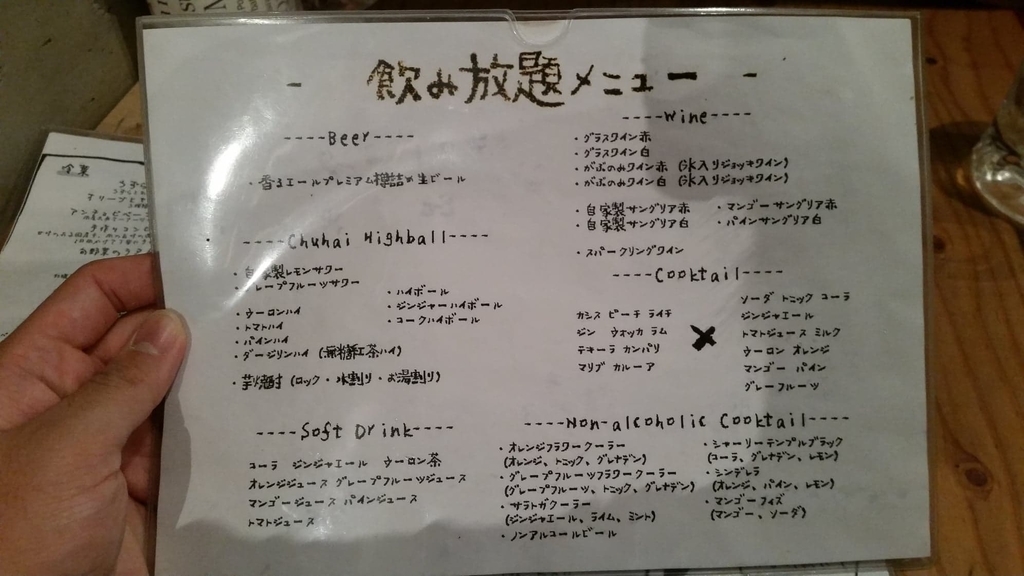 - 飲み放題メニュー -
----Beer----
・香るエールプレミアム樽詰め生ビール
----Chuhai Highball----
・自家製レモンサワー
・グレープフルーツサワー
・ウーロンハイ
・トマトハイ
・パインハイ
・ダージリンハイ (無糖紅茶ハイ)
・ハイボール
・ジンジャーハイボール
・コークハイボール
・芋焼酎 (ロック・水割り・お湯割り)
----Soft Drink----
コーラ ジンジャエール ウーロン茶
オレンジジュース グレープフルーツジュース
マンゴージュース パインジュース
トマトジュース
----Wine----
・グラスワイン赤
・グラスワイン白
・がぶのみワイン赤 (氷入りジョッキワイン)
・がぶのみワイン白 (氷入りジョッキワイン)
・自家製サングリア赤
・自家製サングリア白
・マンゴーサングリア赤
・パインサングリア白
・スパークリングワイン
----Cocktail----
カシス ピーチ ライチ
ジン ウォッカ ラム
テキーラ カンパリ
マリブ カルーア
×
ソーダ トニック コーラ
ジンジャエール
トマトジュース ミルク
ウーロン オレンジ
マンゴー パイン
グレーフルーツ
----Non-alcoholic Cocktail----
・オレンジフラワークーラー
(オレンジ、トニック、グレナデン)
・グレープフルーツフラワークーラー
(グレープフルーツ、トニック、グレナデン)
・サラトガクーラー
(ジンジャエール、ライム、ミント)
・ノンアルコールビール
・シャーリーテンプルブラック
(コーラ、グレナデン、レモン)
・シンデレラ
(オレンジ、パイン、レモン)
・マンゴーフィズ
(マンゴー、ソーダ)